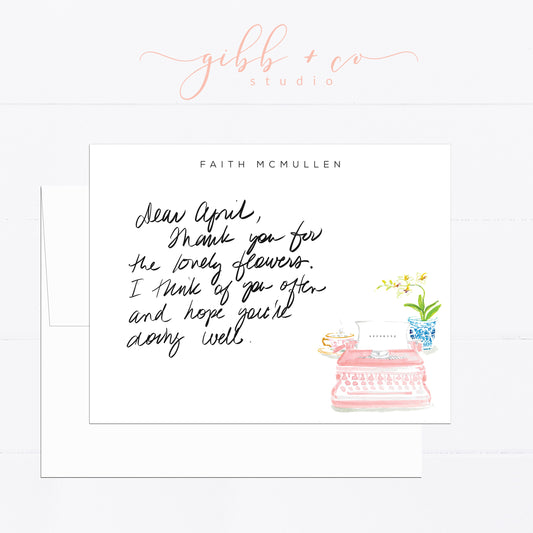 gibb + co
studio
FAITH MCMULLEN
Dear April,
Thank you for
the lovely flowers.
I think of you often
and hope you're
doing well.